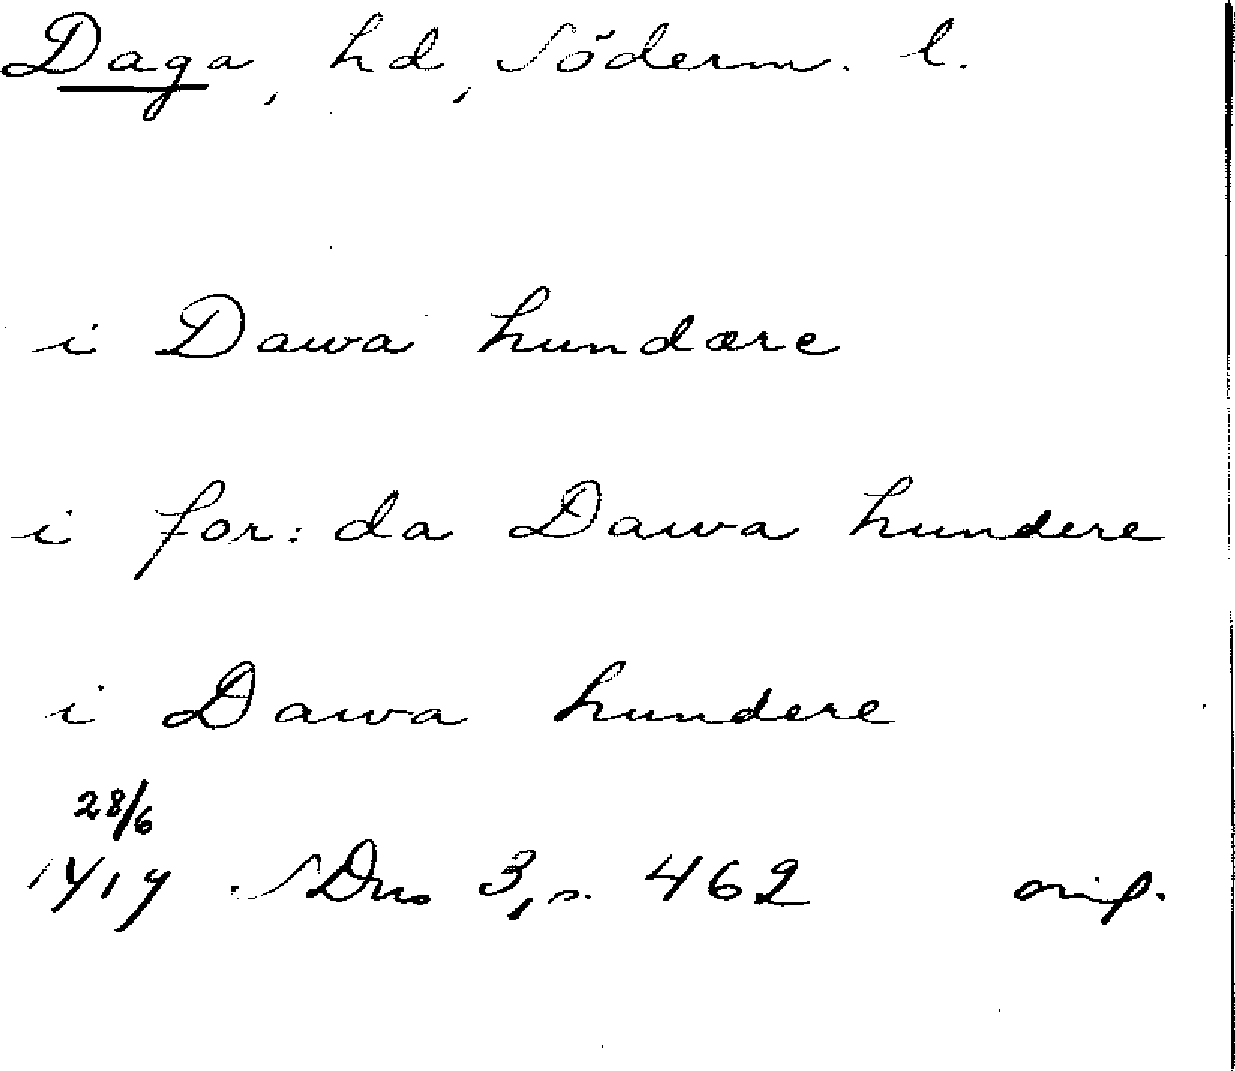 Daga, hd, Söderm. l.
i Dawa hundære
i for: da Dawa hundere
i Dawa hundere
28/6
1417 SDns 3, s. 462 orig.